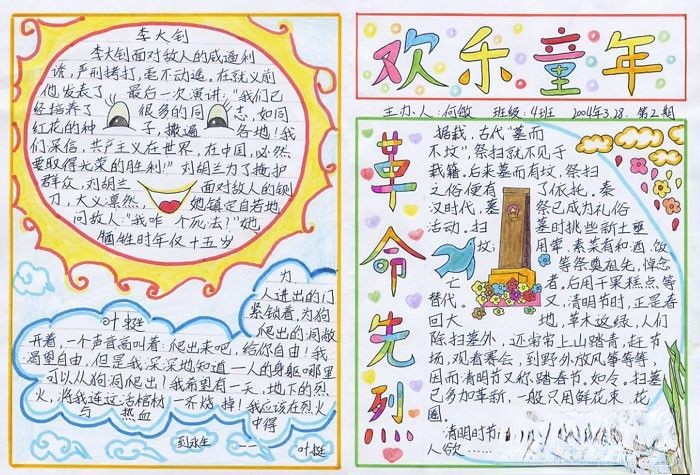 李大钊
李大钊面对敌人的威逼利
诱，严刑拷打，毫不动遥，在就义前
他发表了 最后一次演讲："我们已
经培养了 很多的同 志，如同
红花的种 子，撒遍 各地！我
们采信，共产主义在世界，在中国，必然
要取得光荣的胜利！"刘胡兰为了掩护
群众，刘胡兰 面对敌人的铡
刀，大义凛然， 她镇定自若地
问敌人："我咋 个死法？"她
牺牲时年仅十五岁
叶挺
为
人进出的门
紧锁着，为狗
爬出的洞敞
开着，一个声音高叫着：爬出来吧，给你自由！我
渴望自由，但是我深深地知道一人的身躯哪里
可以从狗洞爬出！我希望有一天，地下的烈
火，将我连这活棺材一齐烧掉！我应该在烈火
与 热血 中得
到永生 —— 叶挺
欢乐童年
主办人：何敏 班级：4班 2004年3.28 第2期
革命先烈
据栽，古代"墓而
不坟"，祭扫就不见于
栽籍。后来墓而有坟，祭扫
之俗便有 了依托。秦
汉时代，墓 祭已成为礼俗
活动。扫 墓时挑些新土壅
坟； 用荤、素菜有和酒、饭
等祭奠祖先，悼念
亡 者，后用干果糕点等
替代。 又，清明节时，正是春
回大 地，草木返绿，人们
除扫墓外，还常常上山踏青，赶节
场，观看赛会，到野外放风筝等等，
因而清明节又称踏春节。如今。扫墓
已多加革新，一般只用鲜花束 花
圈。
清明时节
人欲……